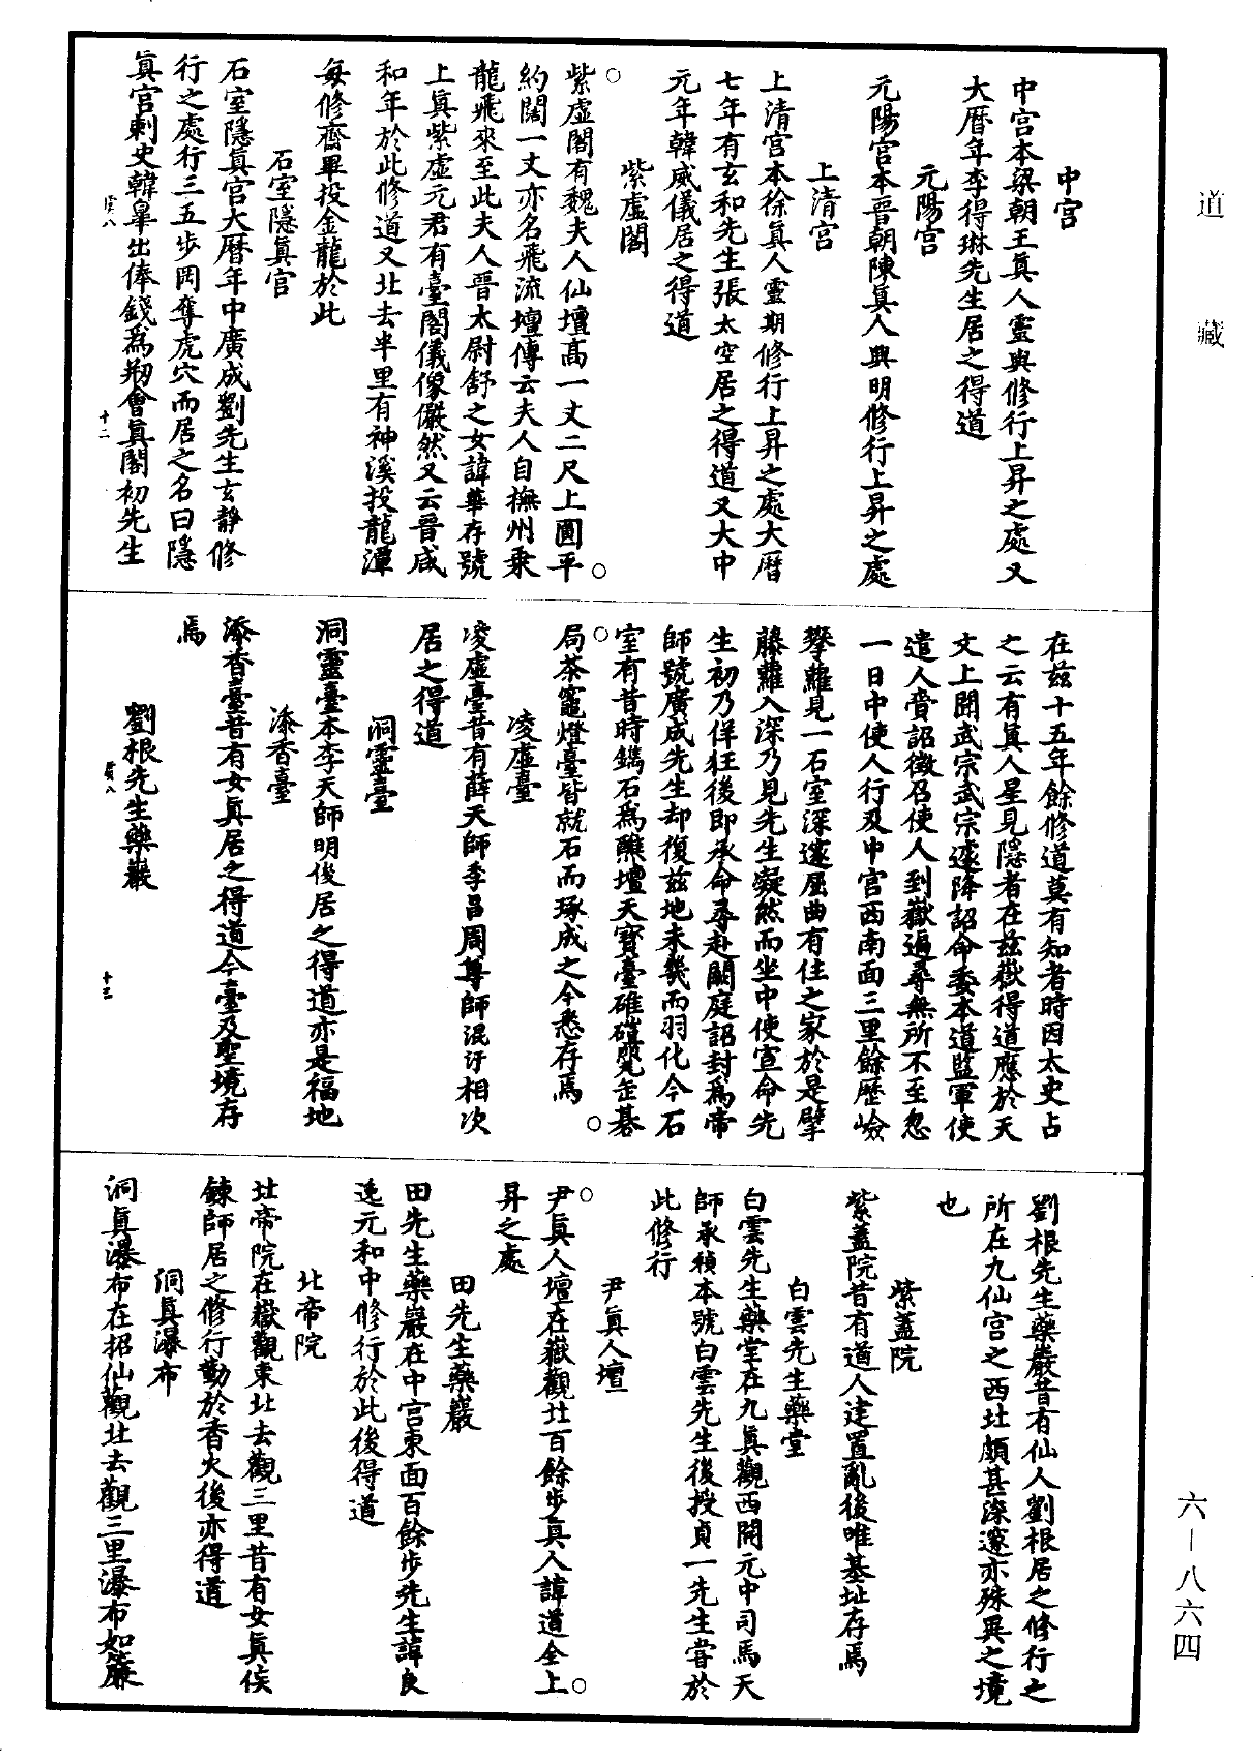 道藏
中宮
中宮本梁朝王真人靈輿修行上昇之處又
大曆年李得琳先生居之得道
元陽宮
元陽宮本晋朝陳真人興明修行上昇之處
上清宮
上清宮本徐真人靈期修行上昇之處大曆
七年有玄和先生張太空居之得道又大中
元年韓威儀居之得道
紫虛閣
紫虛閣有魏夫人仙壇高一丈二尺上圓平
約闊一丈亦名飛流壇傳云夫人自撫州乘
龍飛來至此夫人晋太尉舒之女諱華存號
上真紫虛元君有臺閣儀像儼然又云晋咸
和年於此修道又北去半里有神溪投龍潭
每修齋畢投金龍於此
石室隱真宮
石室隱真宮大曆年中廣成劉先生玄靜修
行之處行三五步罔奪虎穴而居之名曰隱
真宮刺史韓皋出俸錢為剏會真閣初先生
十二
在茲十五年餘修道莫有知者時因太史占
之云有真人星見隱者在茲嶽得道應於天
文上聞武宗武宗遽降詔命委本道監軍使
遣人齎詔徵召使人到嶽遍尋無所不至忽
一日中使人行及中宮西南面三里餘歷嶮
攀蘿見一石室深邃屈曲有住之家於是擘
藤蘿入深乃見先生凝然而坐中使宣命先
生初乃佯狂後即承命尋赴闕庭詔封為帝
師號廣成先生却復茲地未幾而羽化今石
室有昔時鐫石為醮壇天寶臺碓磑凳缶碁
局茶竈燈臺皆就石而琢成之今悉存焉
凌虛臺
凌虛臺昔有薛天師季昌周尊師混汙相次
居之得道
洞靈臺
洞靈臺本李天師明俊居之得道亦是福地
添香臺
添香臺昔有女真居之得道今臺及聖境存
焉
劉根先生藥巖
十三
劉根先生藥巖昔有仙人劉根居之修行之
所在九仙宮之西北頗甚深邃亦殊異之境
也
紫蓋院
紫蓋院昔有道人建置亂後唯基址存焉
白雲先生藥堂
白雲先生藥堂在九真觀西開元中司馬天
師承禎本號白雲先生後授貞一先生嘗於
此修行
尹真人壇
尹真人壇在嶽觀北百餘步真人諱道全上
昇之處
田先生藥巖
田先生藥巖在中宮東面百餘步先生諱良
逸元和中修行於此後得道
北帝院
北帝院在嶽觀東北去觀三里昔有女真侯
鍊師居之修行勤於香火後亦得道
洞真瀑布
洞真瀑布在招仙觀北去觀三里瀑布如簾
六－八六四